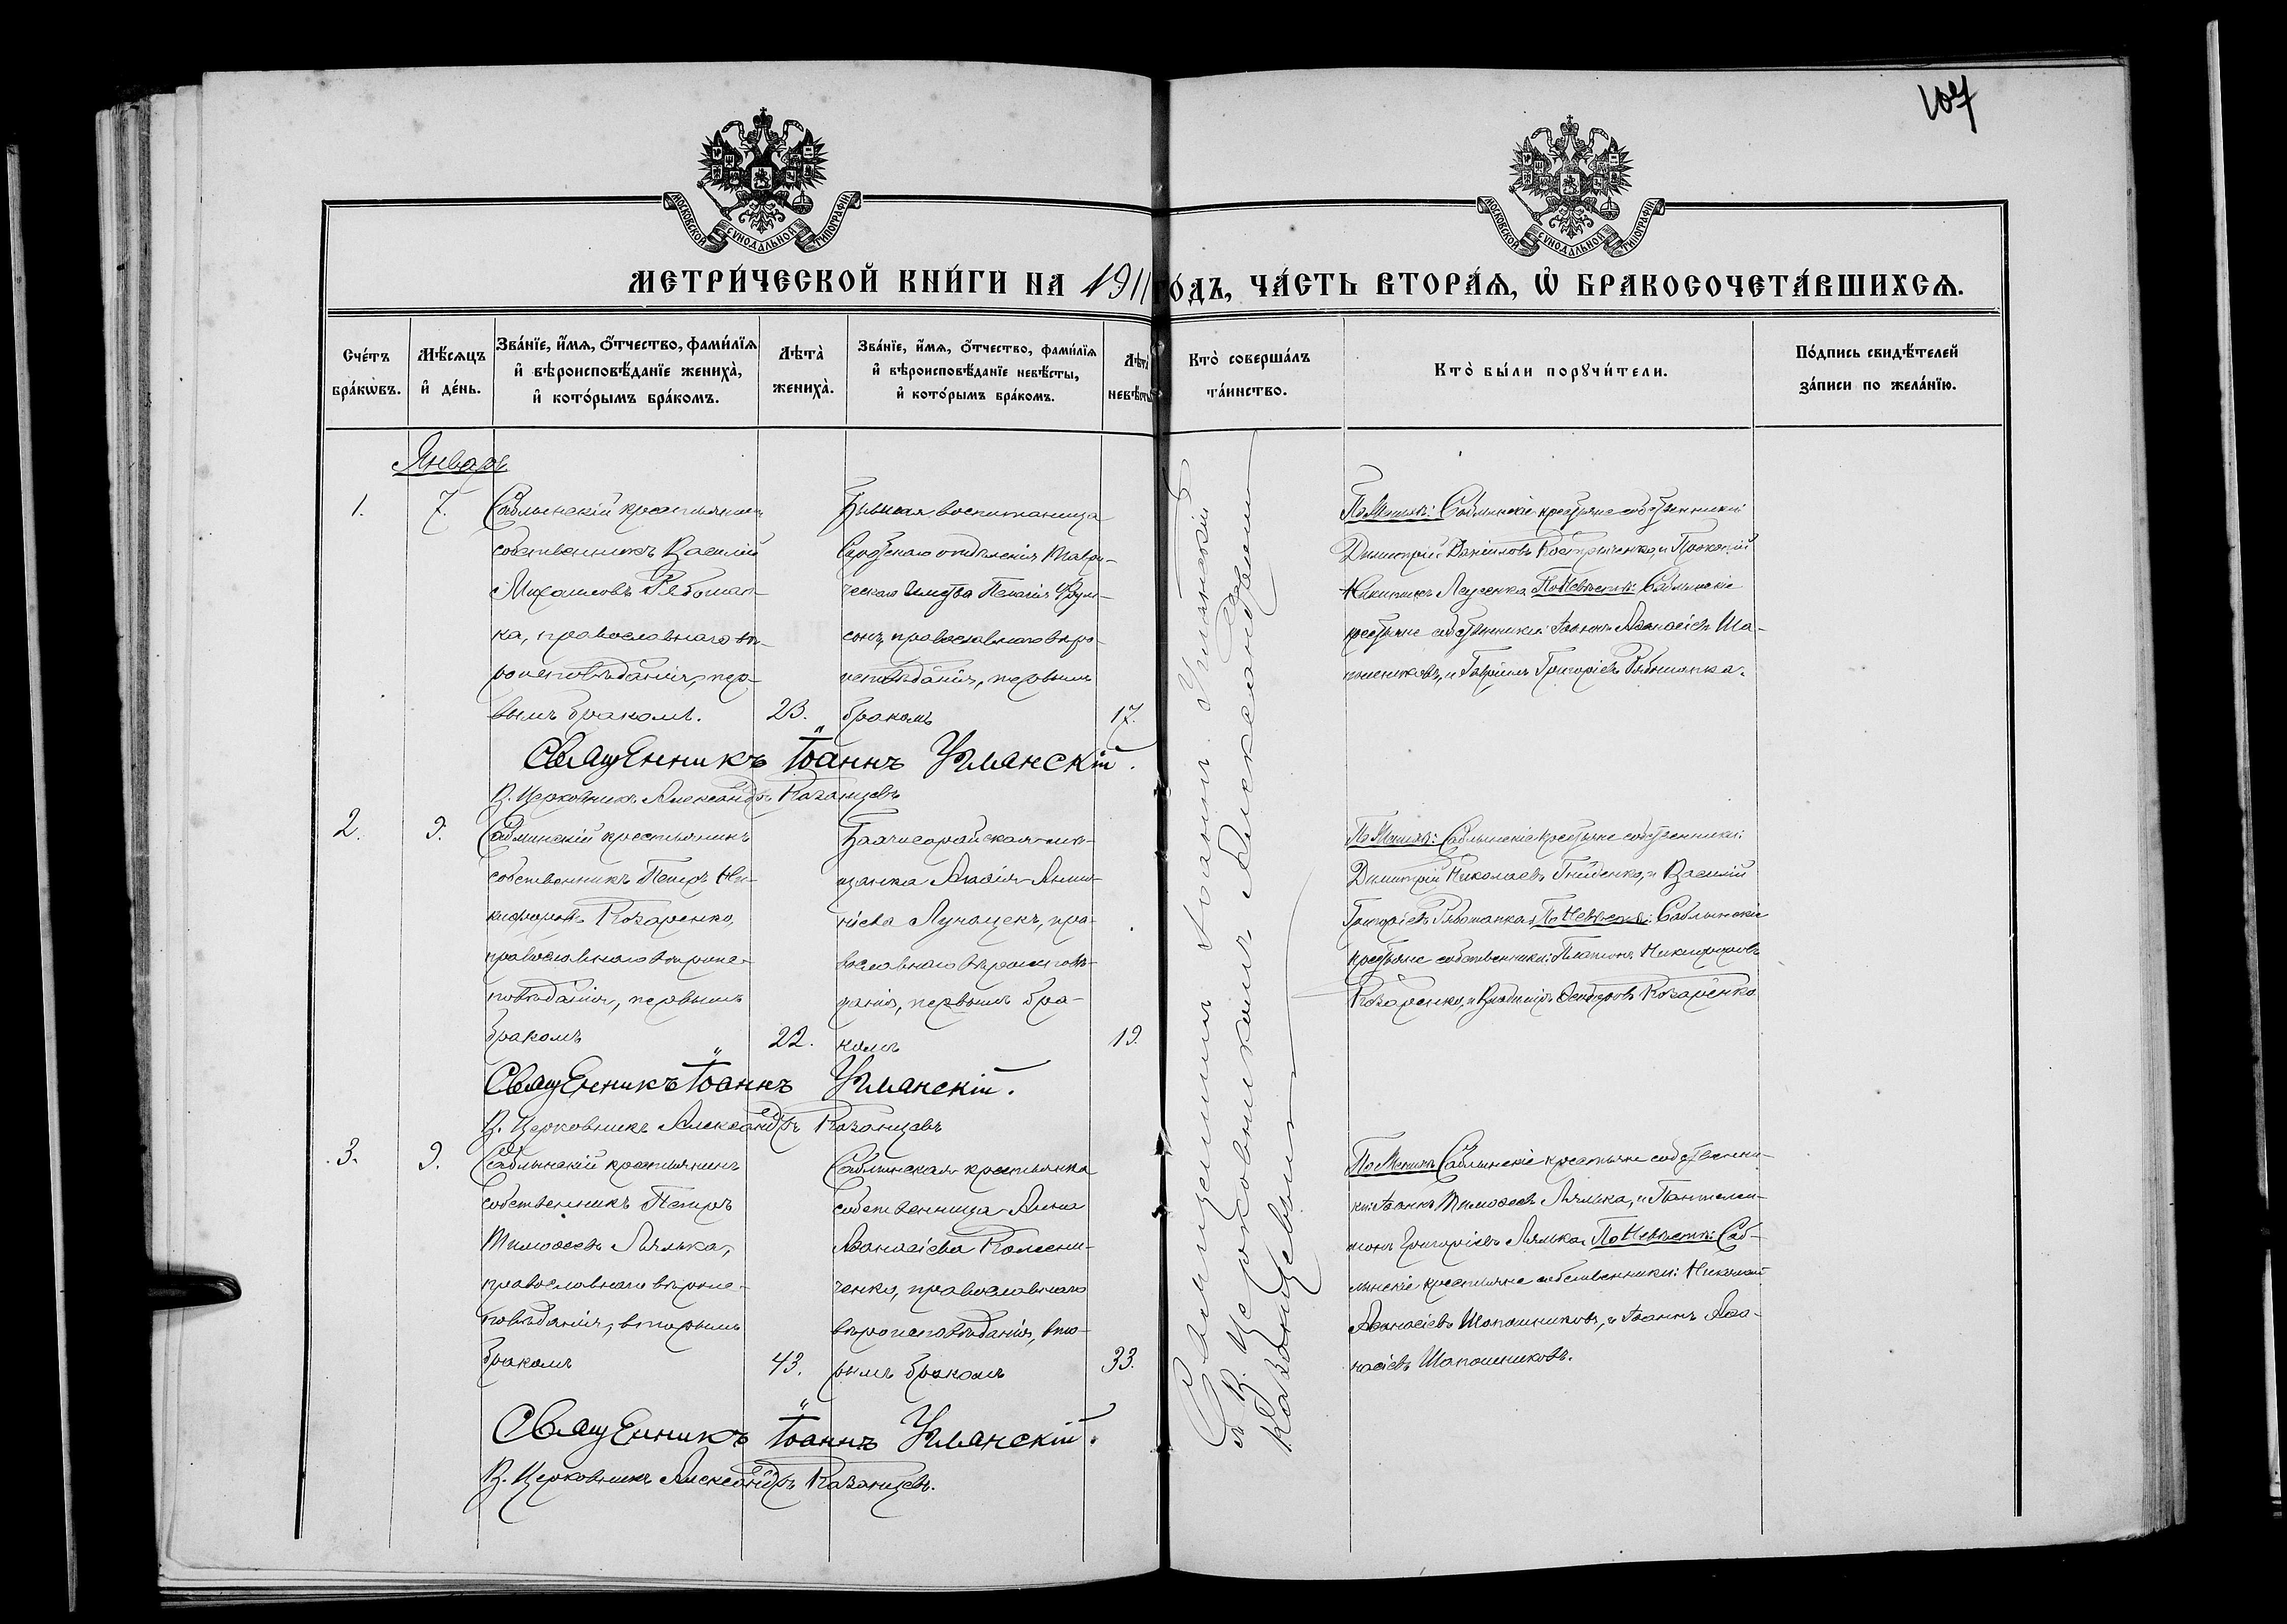 107
МОСКОВСКОЙ СѴНОДАЛЬНОЙ ТИПОГРАФІИ
МОСКОВСКОЙ СѴНОДАЛЬНОЙ ТИПОГРАФІИ
МЕТРИ́ЧЕСКОЙ КНИ́ГИ НА 1911 ГО́ДЪ, ЧА́СТЬ ВТОРА́Ѧ, Ѡ҆ БРАКОСОЧЕТА́ВШИХСѦ.
Сче́тъ бра́кѡвъ.
Мѣ́сѧцъ и҆ де́нь.
Зва́нїе, и҆́мѧ, ѻ҆́тчество, фами́лїѧ и҆ вѣроисповѣ́данїе жениха̀, и҆ кото́рымъ бра́комъ.
Лѣта̀ жениха̀.
Зва́нїе, и҆́мѧ, ѻ҆́тчество, фами́лїѧ и҆ вѣроисповѣ́данїе невѣ́сты, и҆ кото́рымъ бра́комъ.
Лѣта̀ невѣ́сты
Кто̀ соверша́лъ та́инство.
Кто̀ бы́ли порꙋчи́тели.
По́дпись свидѣ́телей за́писи по жела́нїю.
Январь
1.
7.
Саблынскій крестьянинъ
собственникъ Василій
Михаиловъ Рябошап-
ка, православнаго вѣ-
роисповѣданія, пер-
вымъ бракомъ.
23.
Бывшая воспитаница
отдѣленія Таври-
ческаго Пелагія
православнаго вѣро-
исповѣданія, первымъ
бракомъ
17.
По Женихѣ: Саблынскіе крестьяне собственники:
Димитрій Даніиловъ и Прокопій
Никитинъ По Невѣстѣ: Саблынскіе
крестьяне собственники: Іоаннъ Аѳанасіевъ Ша-
пошниковъ, и Гавріилъ Григоріевъ Рябошапка.
Священникъ Іоаннъ Уманскій.
В. Церковникъ Александръ Казанцевъ
2.
9.
Саблынскій крестьянинъ
собственникъ Петръ Ни-
кифоровъ Козаренко,
православнаго вѣроис-
повѣданія, первымъ
бракомъ
22.
Бахчисарайская мѣ-
щанка
пра-
вославнаго вѣроисповѣ-
данія, первымъ бра-
комъ
19.
По Женихѣ: Саблынскіе крестьяне собственники:
Димитрій Николаевъ Гниденко, и Василій
Григоріевъ Рябошапка. По Невѣстѣ: Саблынскіе
крестьяне собственники: Платонъ Никифоровъ
Козаренко, и Владиміръ Козаренко
Священникъ Іоаннъ Уманскій.
В. Церковникъ Александръ Казанцевъ
3.
9.
Саблынскій крестьянинъ
собственникъ Петръ
Тимоѳеевъ Лялька,
православнаго вѣроис-
повѣданія, вторымъ
бракомъ
43.
Саблынская крестьянка
собственница Анна
Аѳанасіева Колесни-
ченко, православнаго
вѣроисповѣданія, вто-
рымъ бракомъ
33.
По Женихѣ Саблынскіе крестьяне собственни-
ки: Іоаннъ Тимоѳеевъ Лялька, и Пантелеи-
монъ Григоріевъ Лялька. По Невѣстѣ: Саб-
лынскіе крестьяне собственники: Николай
Аѳанасіевъ Шапошниковъ, и Іоаннъ Аѳа-
насіевъ Шапошниковъ.
Священникъ Іоаннъ Уманскій.
В. Церковникъ Александръ Казанцевъ.
Священникъ Іоаннъ Уманскій
съ В. Церковникомъ Александромъ
Казанцевымъ